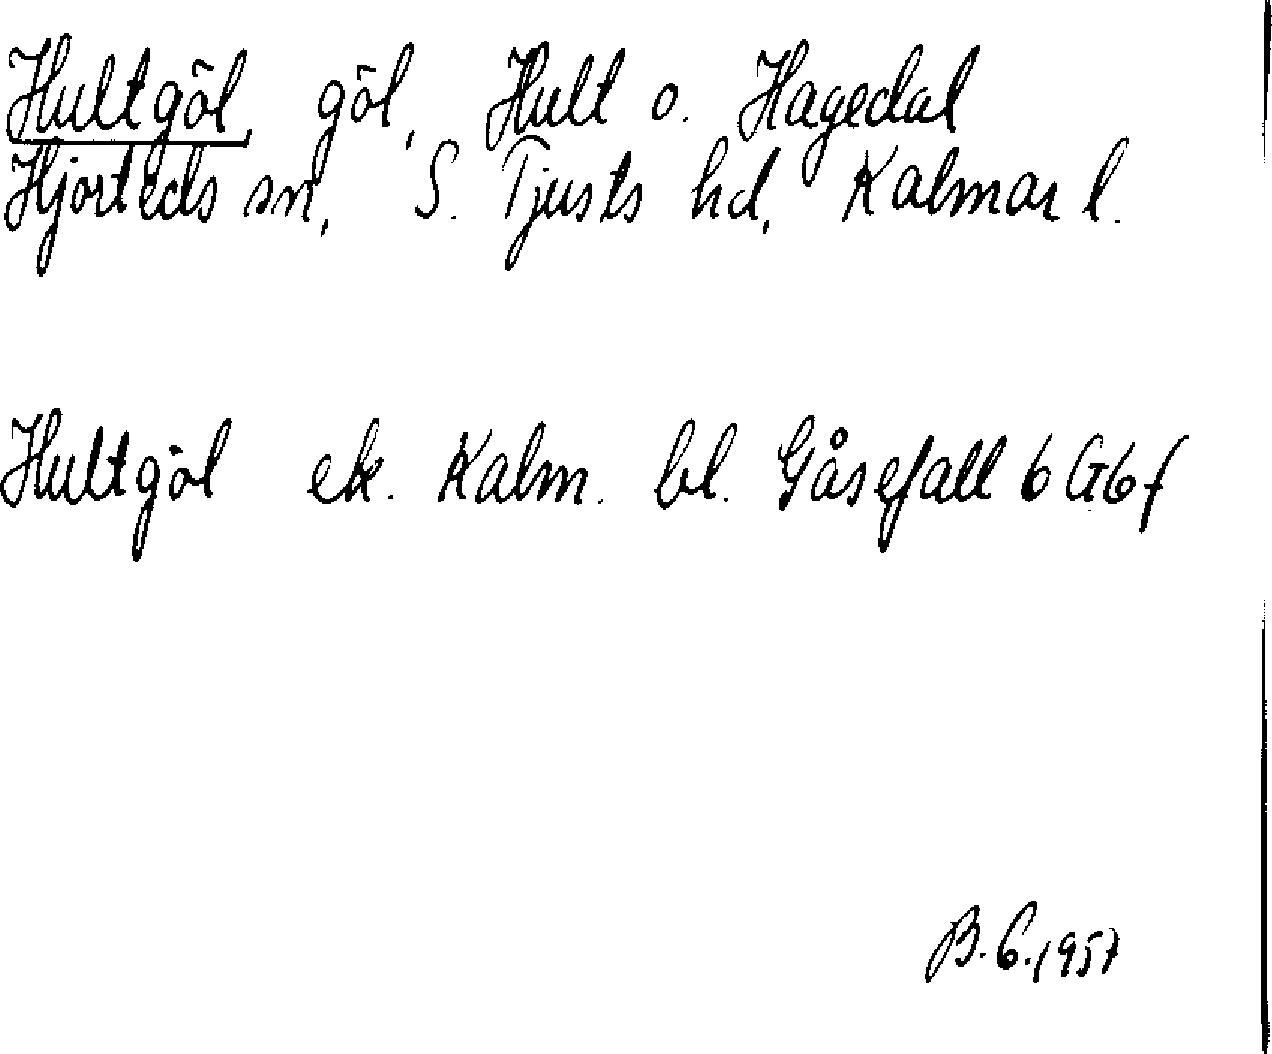 Hultgöl, göl, Hult o. Hagedal
Hjorteds sn, S. Tjusts hd, Kalmar l.
Hultgöl ek. Kalm. bl. Gåsefall 6 G 6 f
B. G. 1957